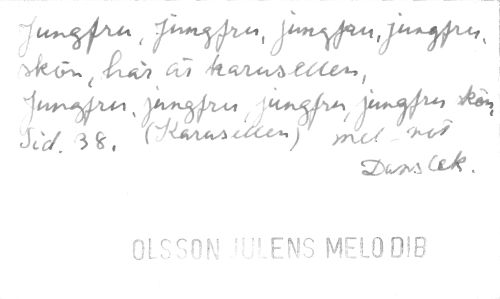 Jungfru, jungfru, jungfru, jungfru,
skön, här är karusellen,
Jungfru, jungfru, jungfru, jungfru skön,
Sid. 38. (Karusellen) mel-not
Danslek.
OLSSON JULENS MELODIB